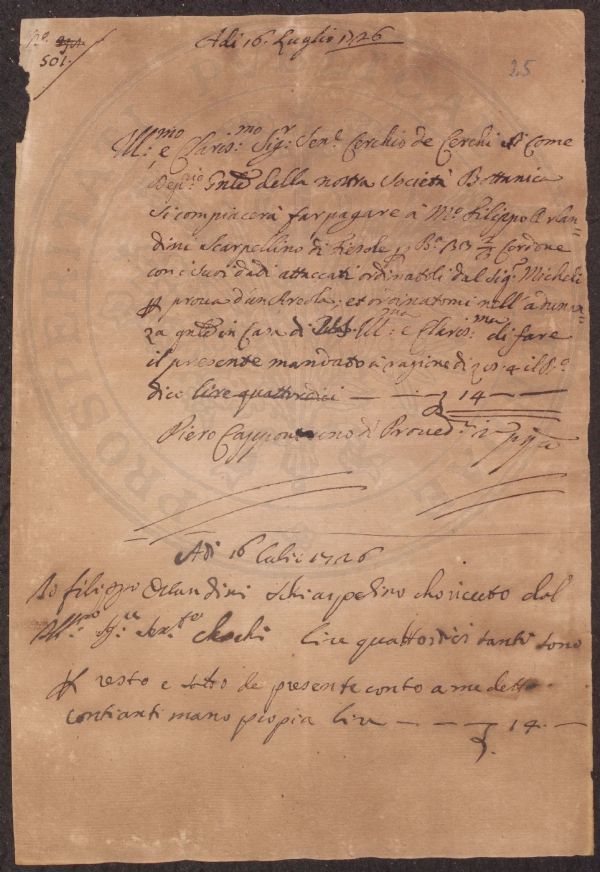 N.º
501.
Adi 16. Luglio 1726
25
Ill:mo e Claris:mo Sig:r Sen:e Cerchio de Cerchi si Come
Dep:rio Gnle della nostra Società Bottanica
si compiacerà far pagare à M.º Filippo Orlan=
dini Scarpellino di Fiesole Cordone
con i suoi dadi attaccati ordinatoli dal Sig:r Micheli
prova d'un Areola, et ordinatomi nell'adunan=
za gnle in Casa di Ill:mo e Claris:mo di fare
il presente mandato à ragione di il B.º
dico lire quattordici — — 14 —
Piero Capponi uno d Proved:ri
Adi 16 Lulio 1726
Io filippo Orlandini Schiarpelino ho riceuto dal
Ill:mo Sig:re Sen:re Cherchi lire quattordici tanti sono
resto e saldo de presente conto a me detto
contianti mano propia lire — — 14 —